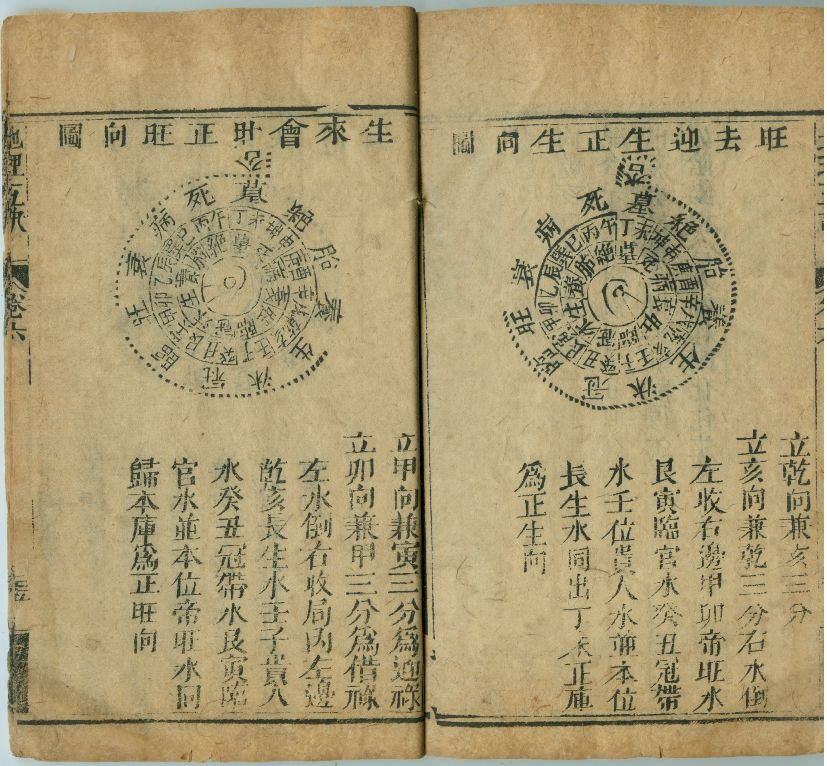 旺去迎生正生向圖
墓絕胎養生沐冠臨旺衰病死
立乾向兼亥三分
立亥向兼乾三分右水倒
左收右邊甲卯帝旺水
艮寅臨官水癸丑冠帶
水壬位貴人水並本位
長生水同出丁未正庫
爲正生向
生來會旺正旺向圖
墓絕胎養生沐冠臨旺衰病死
立甲向兼寅三分爲迎祿
立卯向兼甲三分爲借祿
左水倒右收局內左邊
乾亥長生水壬子貴人
水癸丑冠帶水艮寅臨
官水並本位帝旺水同
歸本庫爲正旺向
地理五訣
卷六